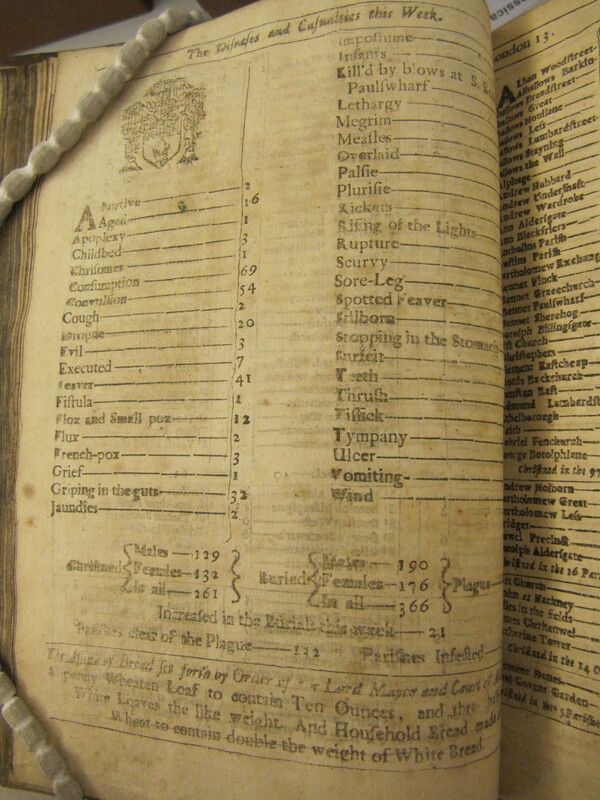 The Diseases and Casualties this Week.
Abortive 2
Aged 16
Apoplexy 1
Childbed 3
Chrisomes 1
Consumption 69
Convulsion 54
Cough 2
Dropsie 20
Evil 3
Executed 7
Feaver 41
Fistula 1
Flox and Small pox 12
Flux 2
French-pox 3
Grief 1
Griping in the guts 32
Jaundies 2
Impostume
Infants
Kill'd by blows at S.
Paulſwharf
Lethargy
Megrim
Meaſles
Overlaid
Palſie
Pluriſie
Rickets
Riſing of the Lights
Rupture
Scurvy
Sore-Leg
Spotted Feaver
Stilborn
Stopping in the Stomach
Surfeit
Teeth
Thruſh
Tiſſick
Tympany
Ulcer
Vomiting
Wind
Chriſtned Males 129 Females 132 In all 261
Buried Males 190 Females 176 In all 366 Plague
Increaſed in the Burials this week 21
Pariſhes clear of the Plague 122 Pariſhes Infected
The Aſſize of Bread ſet forth by Order of the Lord Mayor and Court of
a penny Wheaten Loaf to contain Ten Ounces, and three half
White Loaves the like weight. And Houſhold Bread made
Wheat to contain double the weight of White Bread.
London 13.
Alban Woodſtreet
Alhallows Barkin
Breadſtreet
Great
Honilane
Leſs
Lumbardſtreet
Stayning
the Wall
Alphage
Andrew Hubbard
Andrew Underſhaft
Andrew Wardrobe
Ann Alderſgate
Ann Blackfriers
Pariſh
Pariſh
Bartholomew Exchang
Bennet Finck
Bennet Gracechurch
Bennet Paulſwharf
Bennet Sherehog
Botolph Billingſgate
Chriſt Church
Chriſtophers
Clement Eaſtcheap
Dionis Backchurch
Dunſtan Eaſt
Edmund Lumbardſt
Ethelborough
Faith
Gabriel Fenchurch
George Botolphlane
Chriſtned in the 97
Andrew Holborn
Bartholomew Great
Bartholomew Leſs
Bridget
Precinct
Botolph Alderſgate
Chriſtned in the 16 Pari
Church
John at Hackney
Giles in the fields
Clerkenwel
Katharine Tower
Chriſtned in the
Clement Danes
Covent Garden